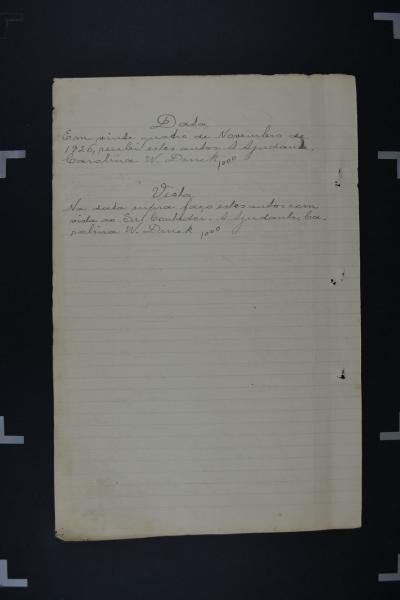 Data
Em vinte quatro de Novembro de
1926, recebi estes autos. A Ajudante,
Carolina W. 1000
Vista
Na data supra faço estes autos com
vista ao Contador. A Ajudante, Ca-
rolina W. 1000